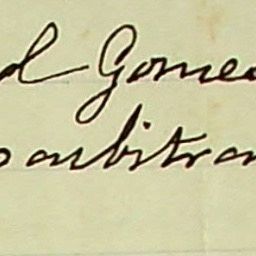 d Gome
o arbitra